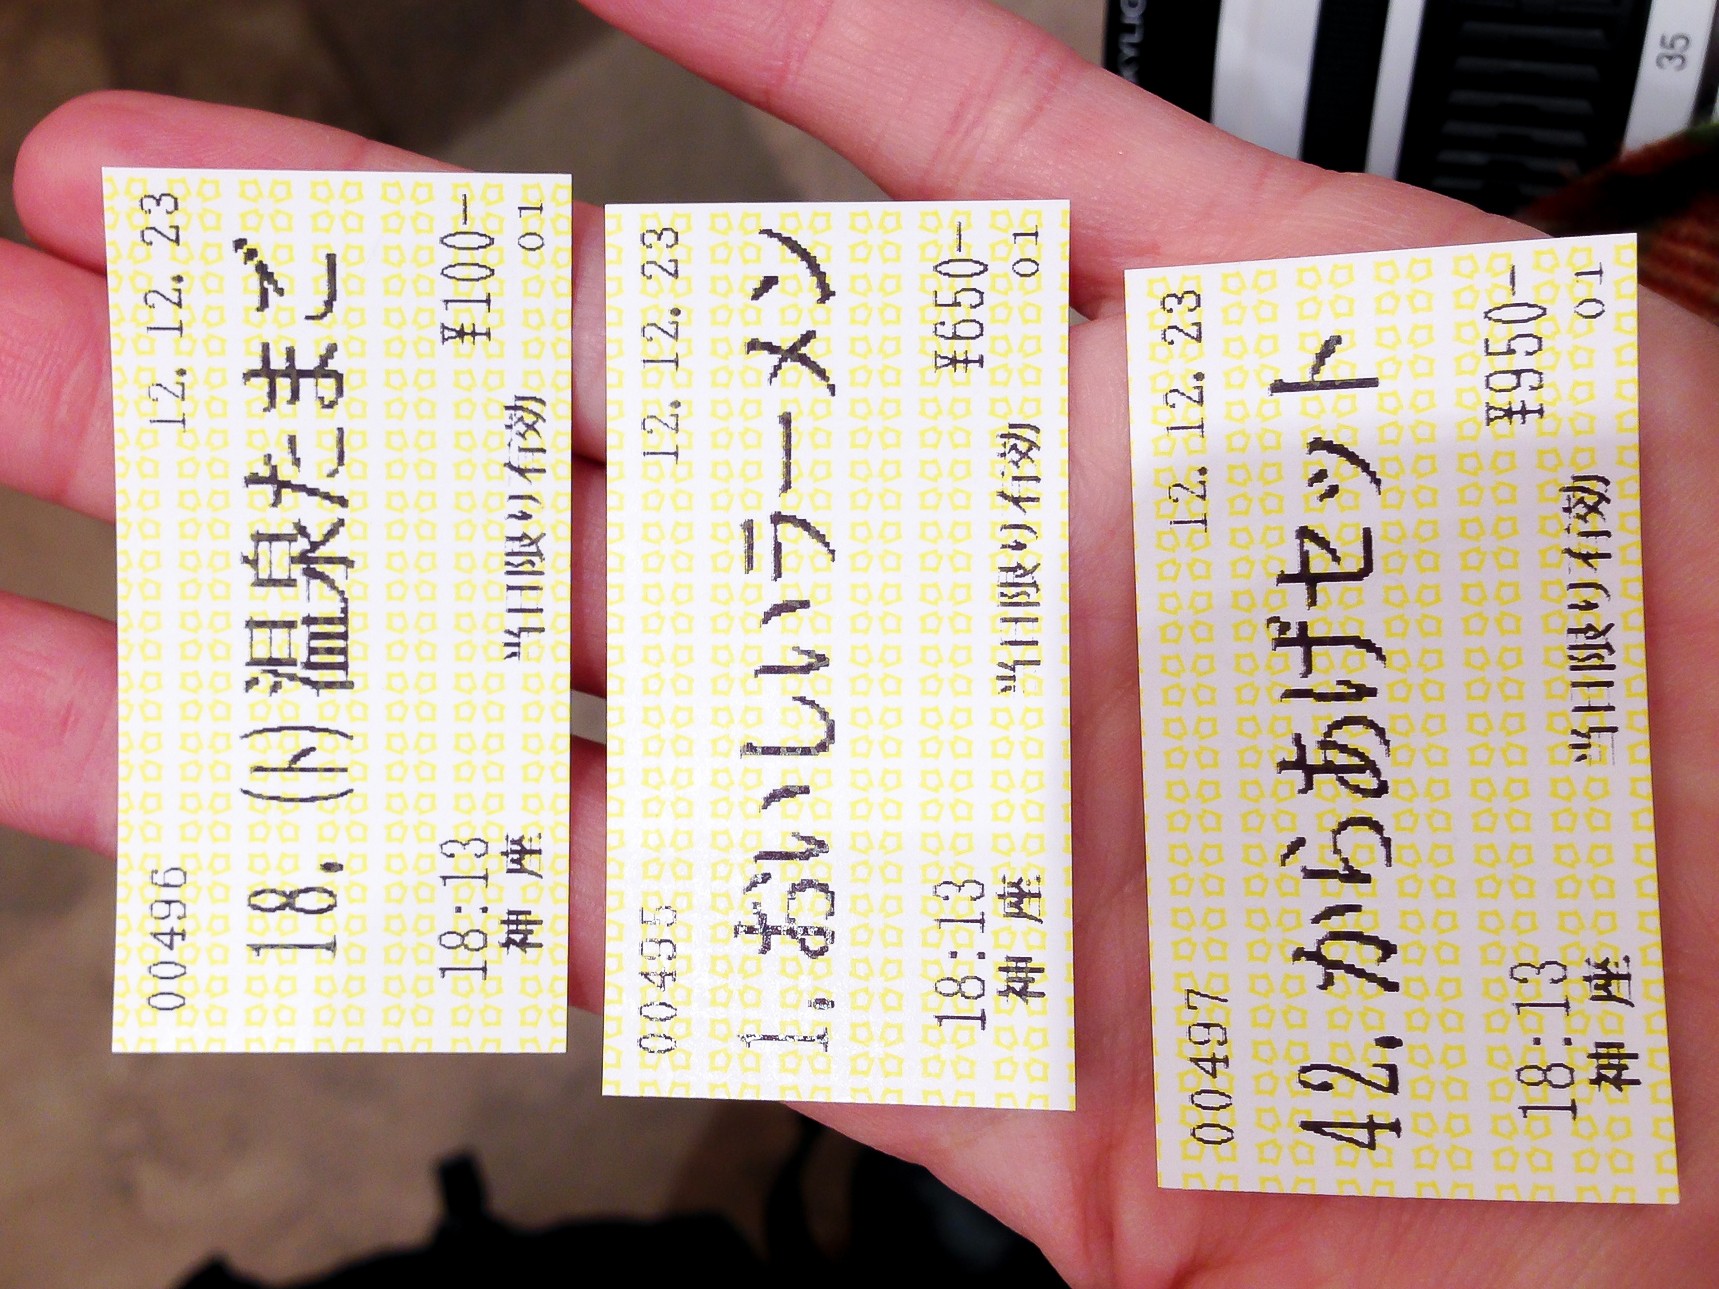 00496 12.12.23
18.(ト)温泉たまご
18:13 ¥100-
神 座 当日限り有効 01
00495 12.12.23
1.おいしいラーメン
18:13 ¥650-
神 座 当日限り有効 01
00497 12.12.23
42.からあげセット
18:13 ¥950-
神 座 当日限り有効 01
35